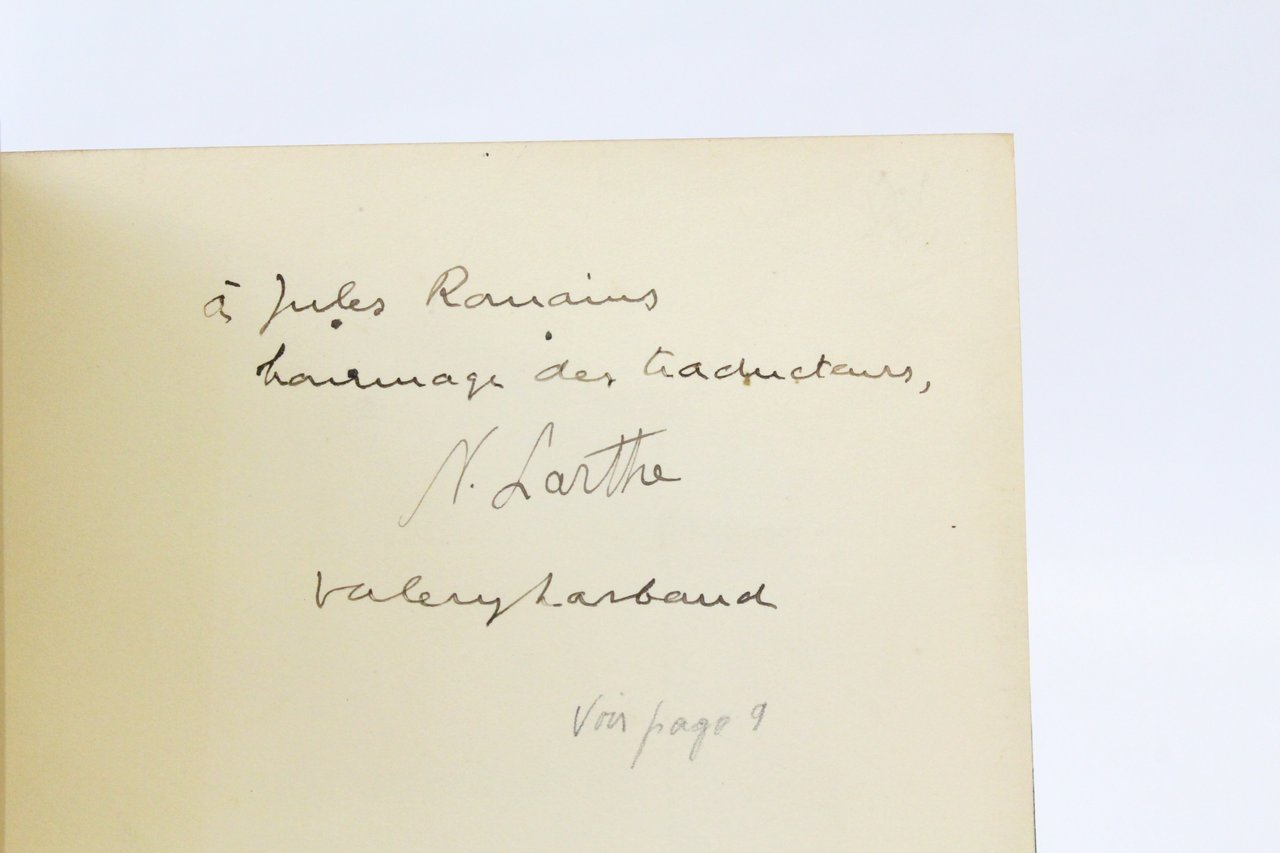 à Jules Romains
hommage des traducteurs,
N. Larthe
Valery Larbaud
Voir page 9